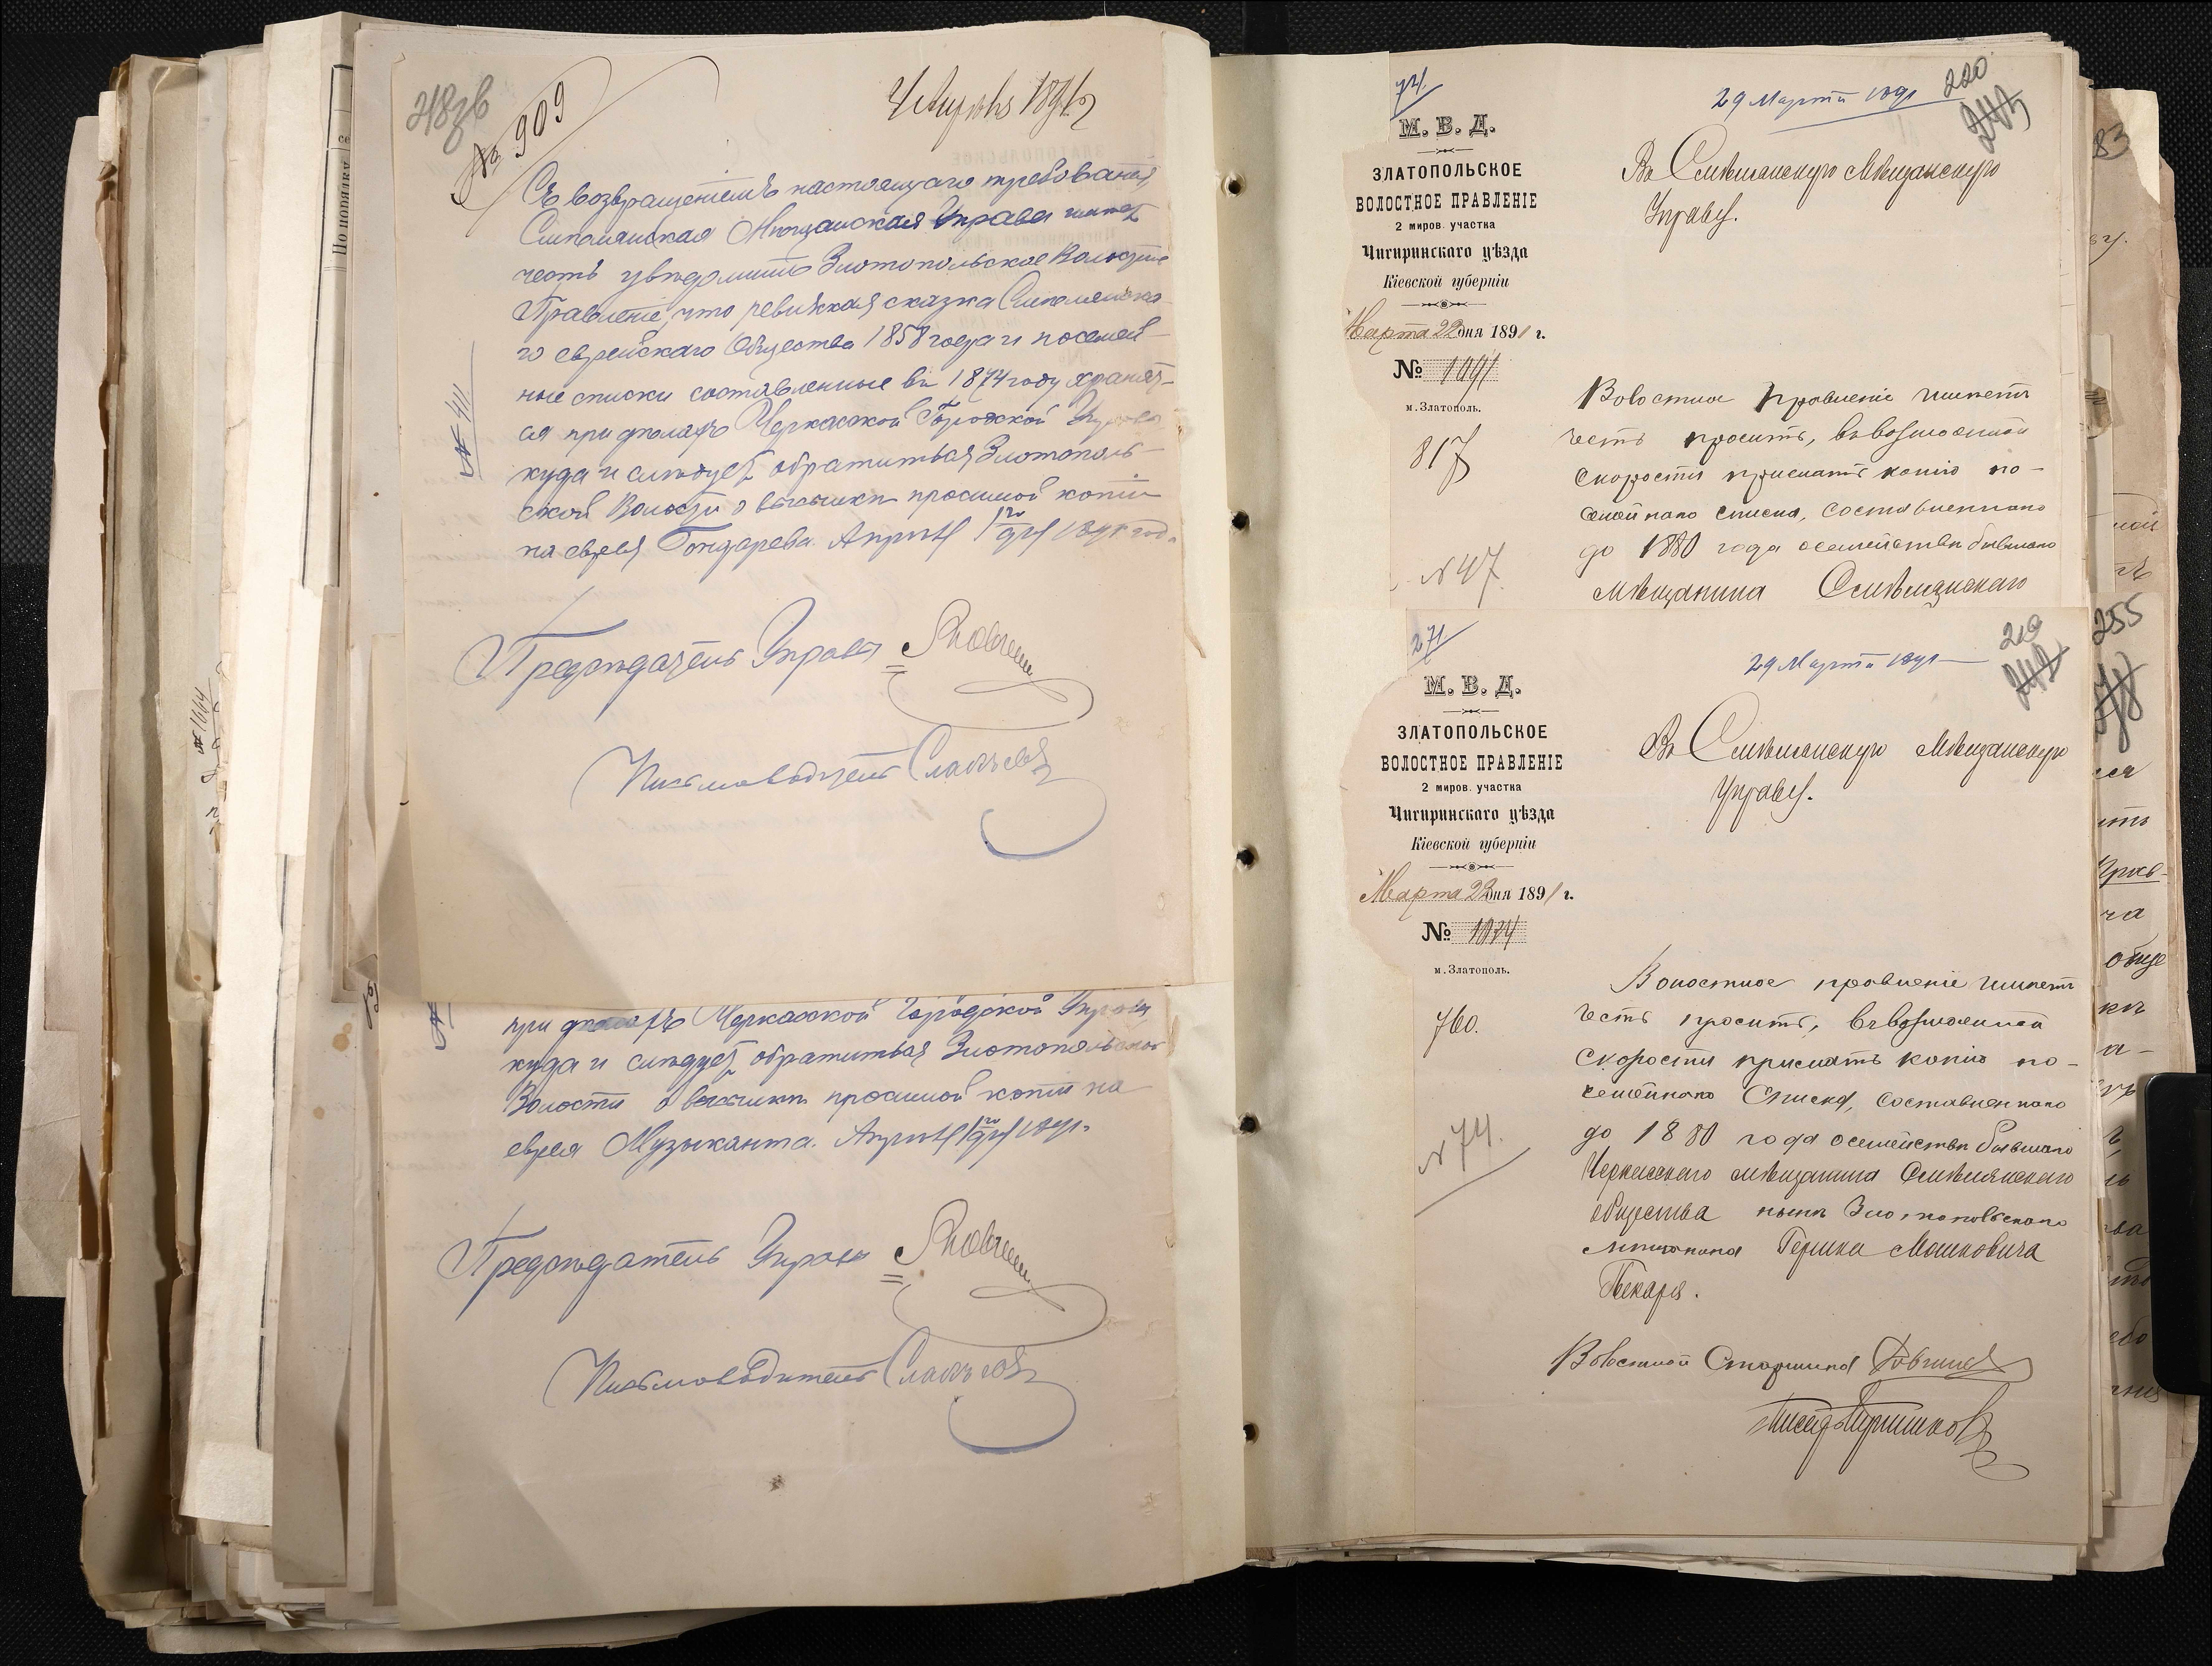 218 зв
№ 909
4 Апреля 1891 г
Съ возвращеніемъ настоящаго требованія,
Смѣлянская Мѣщанская Управа имѣетъ
честь увѣдомить Златопольское Волостное
Правленіе, что ревизская сказка Смѣлянска-
го еврейскаго Общества 1858 года и посемей-
ные списки составленные въ 1874 году хранят-
ся при дѣлахъ Черкасской Городской Управы
куда и слѣдуетъ обратиться Златополь-
ской Волости о высылкѣ просимой копіи
на еврея Гондарева. Апрѣля 1го дня 1891 года
№ 411
Предсѣдатель Управы
Письмоводитель
при дѣлахъ Черкасской Городской Управы,
куда и слѣдуетъ обратиться Златопольской
Волости о высылкѣ просимой копіи на
еврея Музыканта. Апрѣля 1го дня 1891 г.
Предсѣдатель Управы
Письмоводитель
№ 1664
По порядку
74
29 Марта 1891
220
243
М. В. Д.
ЗЛАТОПОЛЬСКОЕ
ВОЛОСТНОЕ ПРАВЛЕНІЕ
2 миров. участка
Чигиринскаго уѣзда
Кіевской губерніи
Марта 22 дня 1891 г.
№ 1091
м. Златополь.
817
N 47.
Въ Смѣлянскую Мѣщанскую
Управу.
Волостное правленіе имѣетъ
честь просить, въ возможной
скорости прислать копію по-
семейнаго списка, составленнаго
до 1880 года о семействѣ бывшаго
мѣщанина Смѣлянскаго
271
29 Марта 1891
219
242
М. В. Д.
ЗЛАТОПОЛЬСКОЕ
ВОЛОСТНОЕ ПРАВЛЕНІЕ
2 миров. участка
Чигиринскаго уѣзда
Кіевской губерніи
Марта 22 дня 1891 г.
№ 1074
м. Златополь.
760.
N 74.
Въ Смѣлянскую Мѣщанскую
Управу.
Волостное правленіе имѣетъ
честь просить, въ возможной
скорости прислать копію по-
семейнаго списка, составленнаго
до 1880 года о семействѣ бывшаго
Черкасскаго мѣщанина Смѣлянскаго
общества нынѣ Златопольскаго
мѣщанина Гершка Мошковича
Пекаря.
Волостной Старшина
Писарь
83
255
278